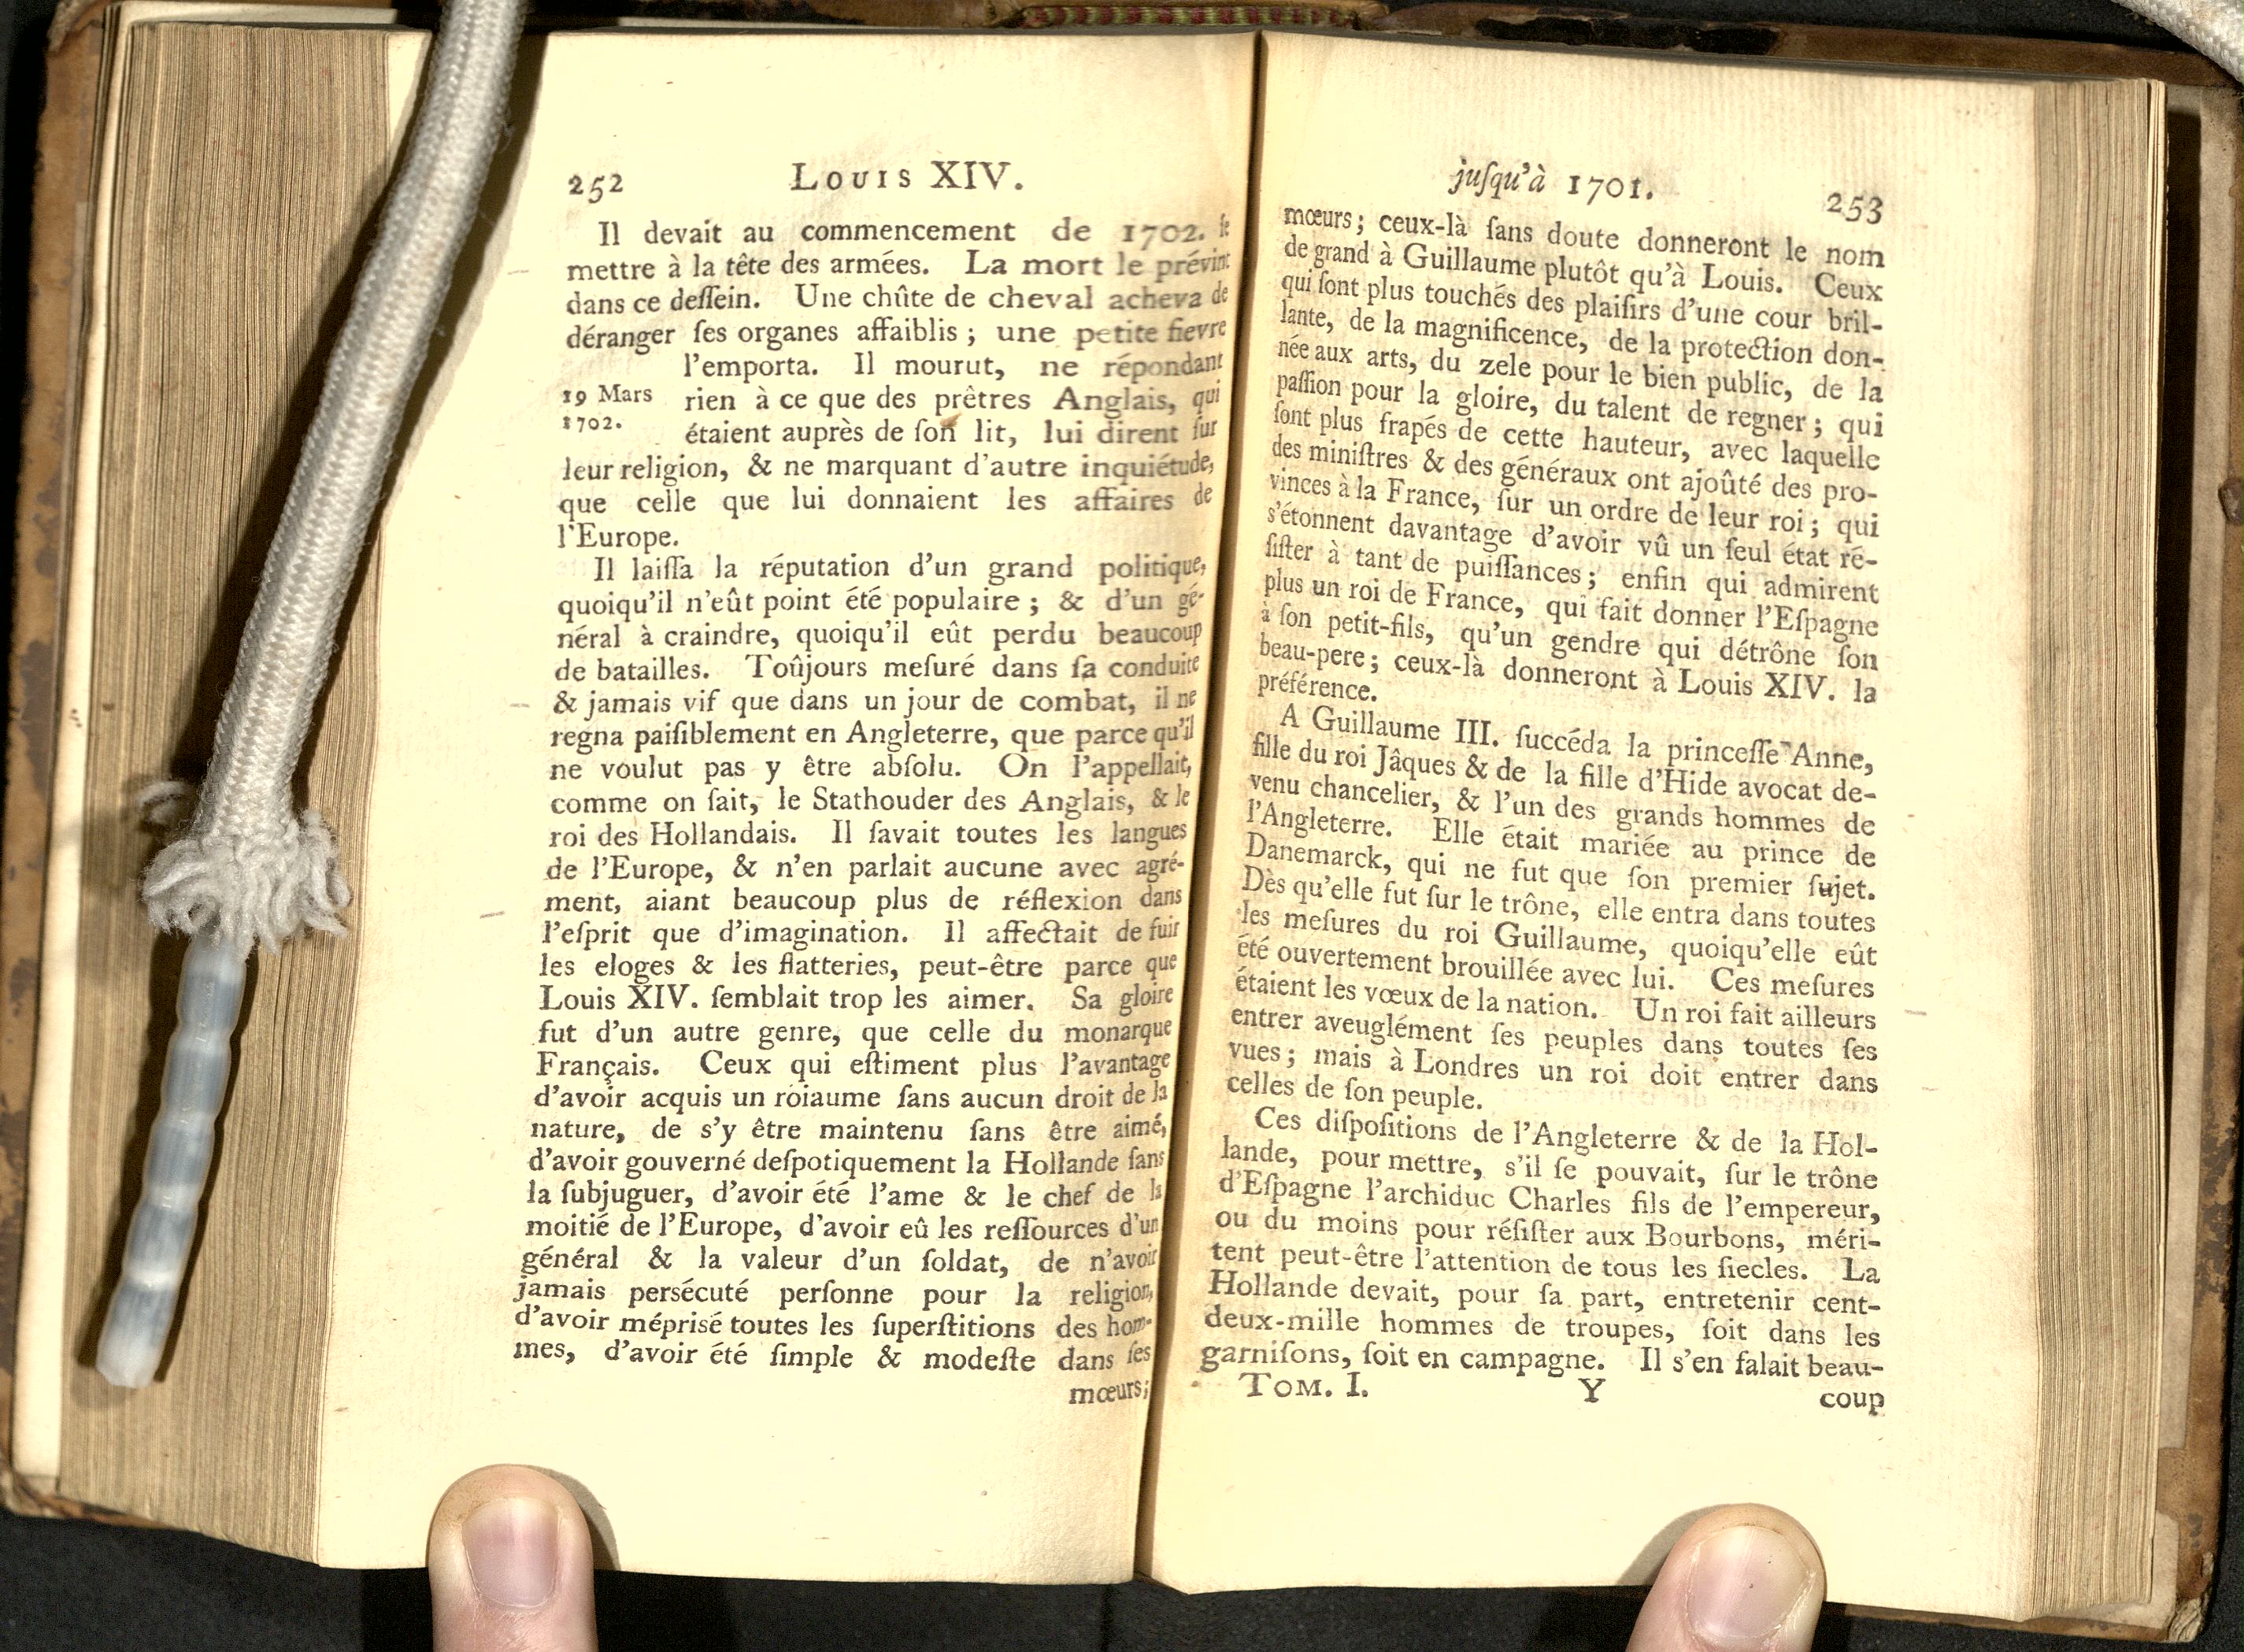 252 Louis XIV.
Il devait au commencement de 1702. ſe
mettre à la tête des armées. La mort le prévint
dans ce deſſein. Une chûte de cheval acheva de
déranger ſes organes affaiblis ; une petite fievre
l'emporta. Il mourut, ne répondant
19 Mars
1702.
rien à ce que des prêtres Anglais, qui
étaient auprès de ſon lit, lui dirent ſur
leur religion, & ne marquant d'autre inquiétude,
que celle que lui donnaient les affaires de
l'Europe.
Il laiſſa la réputation d'un grand politique,
quoiqu'il n'eût point été populaire ; & d'un gé-
néral à craindre, quoiqu'il eût perdu beaucoup
de batailles. Toûjours meſuré dans ſa conduite
& jamais vif que dans un jour de combat, il ne
regna paiſiblement en Angleterre, que parce qu'il
ne voulut pas y être abſolu. On l'appellait,
comme on ſait, le Stathouder des Anglais, & le
roi des Hollandais. Il ſavait toutes les langues
de l'Europe, & n'en parlait aucune avec agré-
ment, aiant beaucoup plus de réflexion dans
l'eſprit que d'imagination. Il affectait de fuir
les eloges & les flatteries, peut-être parce que
Louis XIV. ſemblait trop les aimer. Sa gloire
fut d'un autre genre, que celle du monarque
Français. Ceux qui eſtiment plus l'avantage
d'avoir acquis un roiaume ſans aucun droit de la
nature, de s'y être maintenu ſans être aimé,
d'avoir gouverné deſpotiquement la Hollande ſans
la ſubjuguer, d'avoir été l'ame & le chef de la
moitié de l'Europe, d'avoir eû les reſſources d'un
général & la valeur d'un ſoldat, de n'avoir
jamais persécuté perſonne pour la religion,
d'avoir méprisé toutes les ſuperſtitions des hom-
mes, d'avoir été ſimple & modeſte dans ſes
mœurs;
juſqu'à 1701. 253
mœurs; ceux-là ſans doute donneront le nom
de grand à Guillaume plutôt qu'à Louis. Ceux
qui ſont plus touchés des plaiſirs d'une cour bril-
lante, de la magnificence, de la protection don-
née aux arts, du zele pour le bien public, de la
paſſion pour la gloire, du talent de regner ; qui
ſont plus frapés de cette hauteur, avec laquelle
des miniſtres & des généraux ont ajoûté des pro-
vinces à la France, ſur un ordre de leur roi ; qui
s'étonnent davantage d'avoir vû un ſeul état ré-
ſiſter à tant de puiſſances ; enfin qui admirent
plus un roi de France, qui fait donner l'Eſpagne
à ſon petit-fils, qu'un gendre qui détrône ſon
beau-pere ; ceux-là donneront à Louis XIV. la
préférence.
A Guillaume III. ſuccéda la princeſſe Anne,
fille du roi Jâques & de la fille d'Hide avocat de-
venu chancelier, & l'un des grands hommes de
l'Angleterre. Elle était mariée au prince de
Danemarck, qui ne fut que ſon premier ſujet.
Dès qu'elle fut ſur le trône, elle entra dans toutes
les meſures du roi Guillaume, quoiqu'elle eût
été ouvertement brouillée avec lui. Ces meſures
étaient les vœux de la nation. Un roi fait ailleurs
entrer aveuglément ſes peuples dans toutes ſes
vues ; mais à Londres un roi doit entrer dans
celles de ſon peuple.
Ces diſpoſitions de l'Angleterre & de la Hol-
lande, pour mettre, s'il ſe pouvait, ſur le trône
d'Eſpagne l'archiduc Charles fils de l'empereur,
ou du moins pour réſiſter aux Bourbons, méri-
tent peut-être l'attention de tous les ſiecles. La
Hollande devait, pour ſa part, entretenir cent-
deux-mille hommes de troupes, ſoit dans les
garniſons, ſoit en campagne. Il s'en falait beau-
Tom. I. Y coup